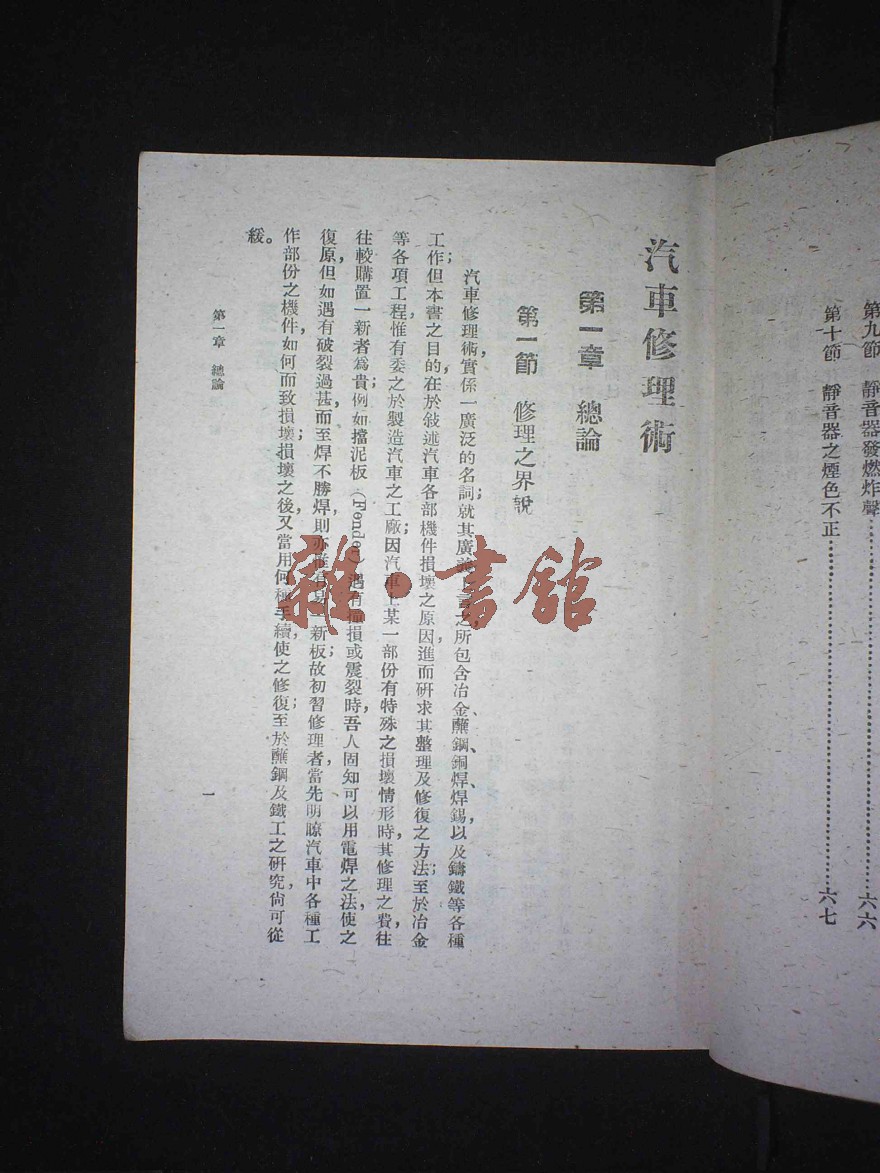 第九節　靜音器發燃炸聲……六六
第十節　靜音器之煙色不正……六七
汽車修理術
第一章　總論
第一節　修理之界說
汽車修理術，實係一廣泛的名詞；就其廣義言之，所包含冶金、蘸鋼、銅焊、焊錫，以及鑄鐵等各種
工作；但本書之目的，在於敍述汽車各部機件損壞之原因，進而研求其整理及修復之方法；至於冶金
等各項工程，惟有委之於製造汽車之工廠，因汽車上某一部份有特殊之損壞情形時，其修理之費，往
往較購置一新者爲貴；例如擋泥板（Fender）遇有損或震裂時，吾人固知可以用電焊之法，使之
復原，但如遇有破裂過甚，而至焊不勝焊，則亦惟有易一新板；故初習修理者，當先明瞭汽車中各種工
作部份之機件，如何而致損壞；損壞之後，又當用何種手續，使之修復；至於蘸鋼及鐵工之研究，尙可從
緩。
第一章　總論
一
雜·書館